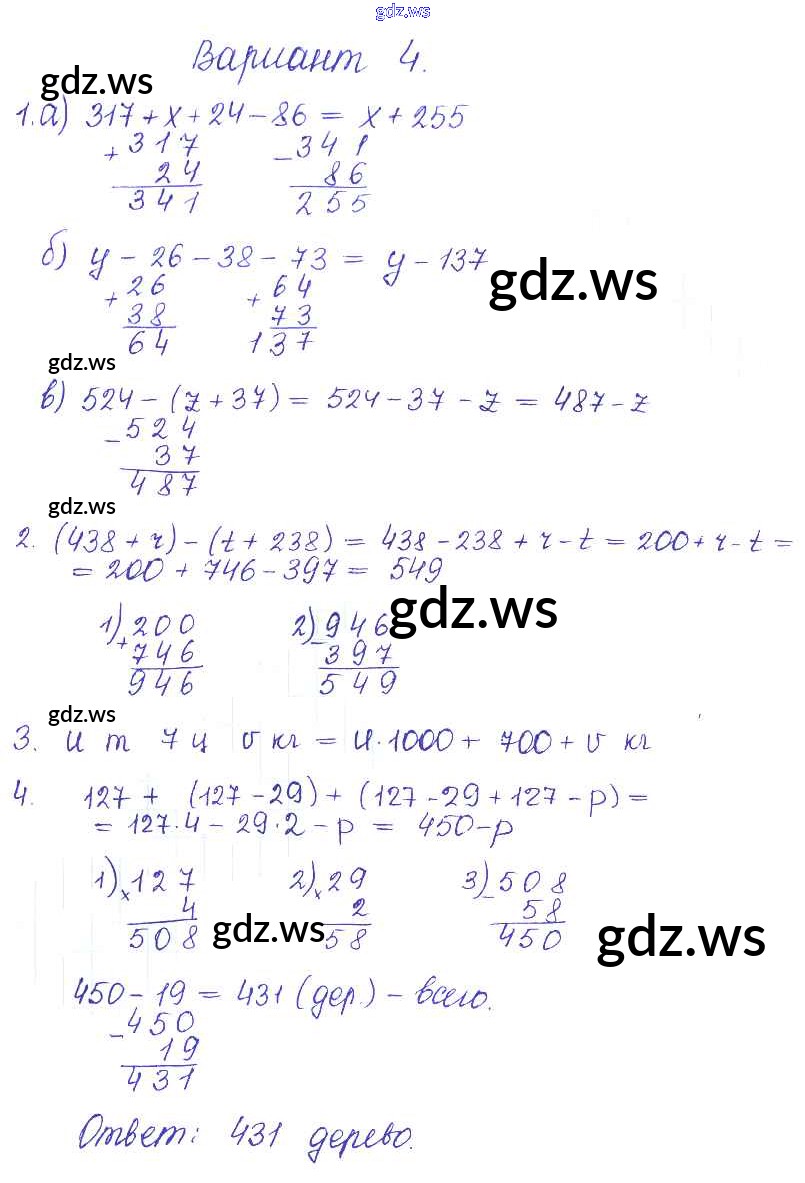 gdz.ws
Вариант 4.
gdz.ws
1. а) 317 + x + 24 - 86 = x + 255
+ 317 - 341
24 86
341 255
б) y - 26 - 38 - 73 = y - 137
gdz.ws
+ 26 + 64
38 73
64 137
gdz.ws
в) 524 - (z + 37) = 524 - 37 - z = 487 - z
- 524
37
487
gdz.ws
2. (438 + r) - (t + 238) = 438 - 238 + r - t = 200 + r - t =
= 200 + 746 - 397 = 549
gdz.ws
1) + 200 2) - 946
746 397
946 549
gdz.ws
3. u т 7 ц v кг = u · 1000 + 700 + v кг
4. 127 + (127 - 29) + (127 - 29 + 127 - p) =
= 127 · 4 - 29 · 2 - p = 450 - p
1) x 127 2) x 29 3) - 508
4 2 58
508 58 450
gdz.ws
gdz.ws
450 - 19 = 431 (дер.) - всего.
- 450
19
431
Ответ: 431 дерево.